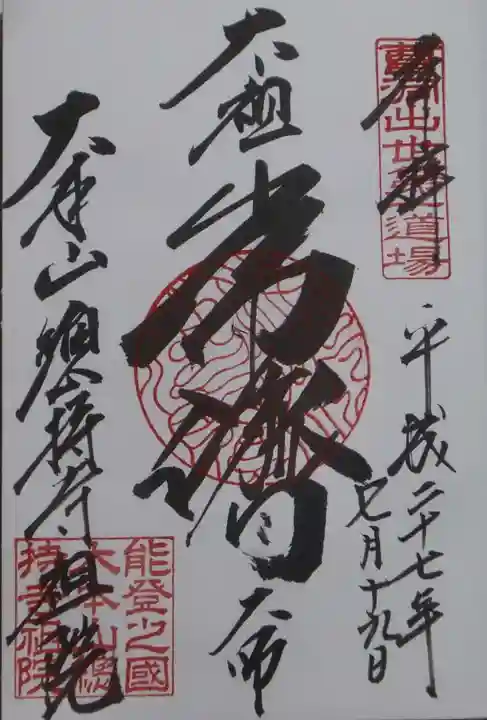 奉拝
曹洞出世之道場
平成二十七年
七月十九日
太祖
常濟
大師
大本山總持寺祖院
能登之國
大本山總
持寺祖院